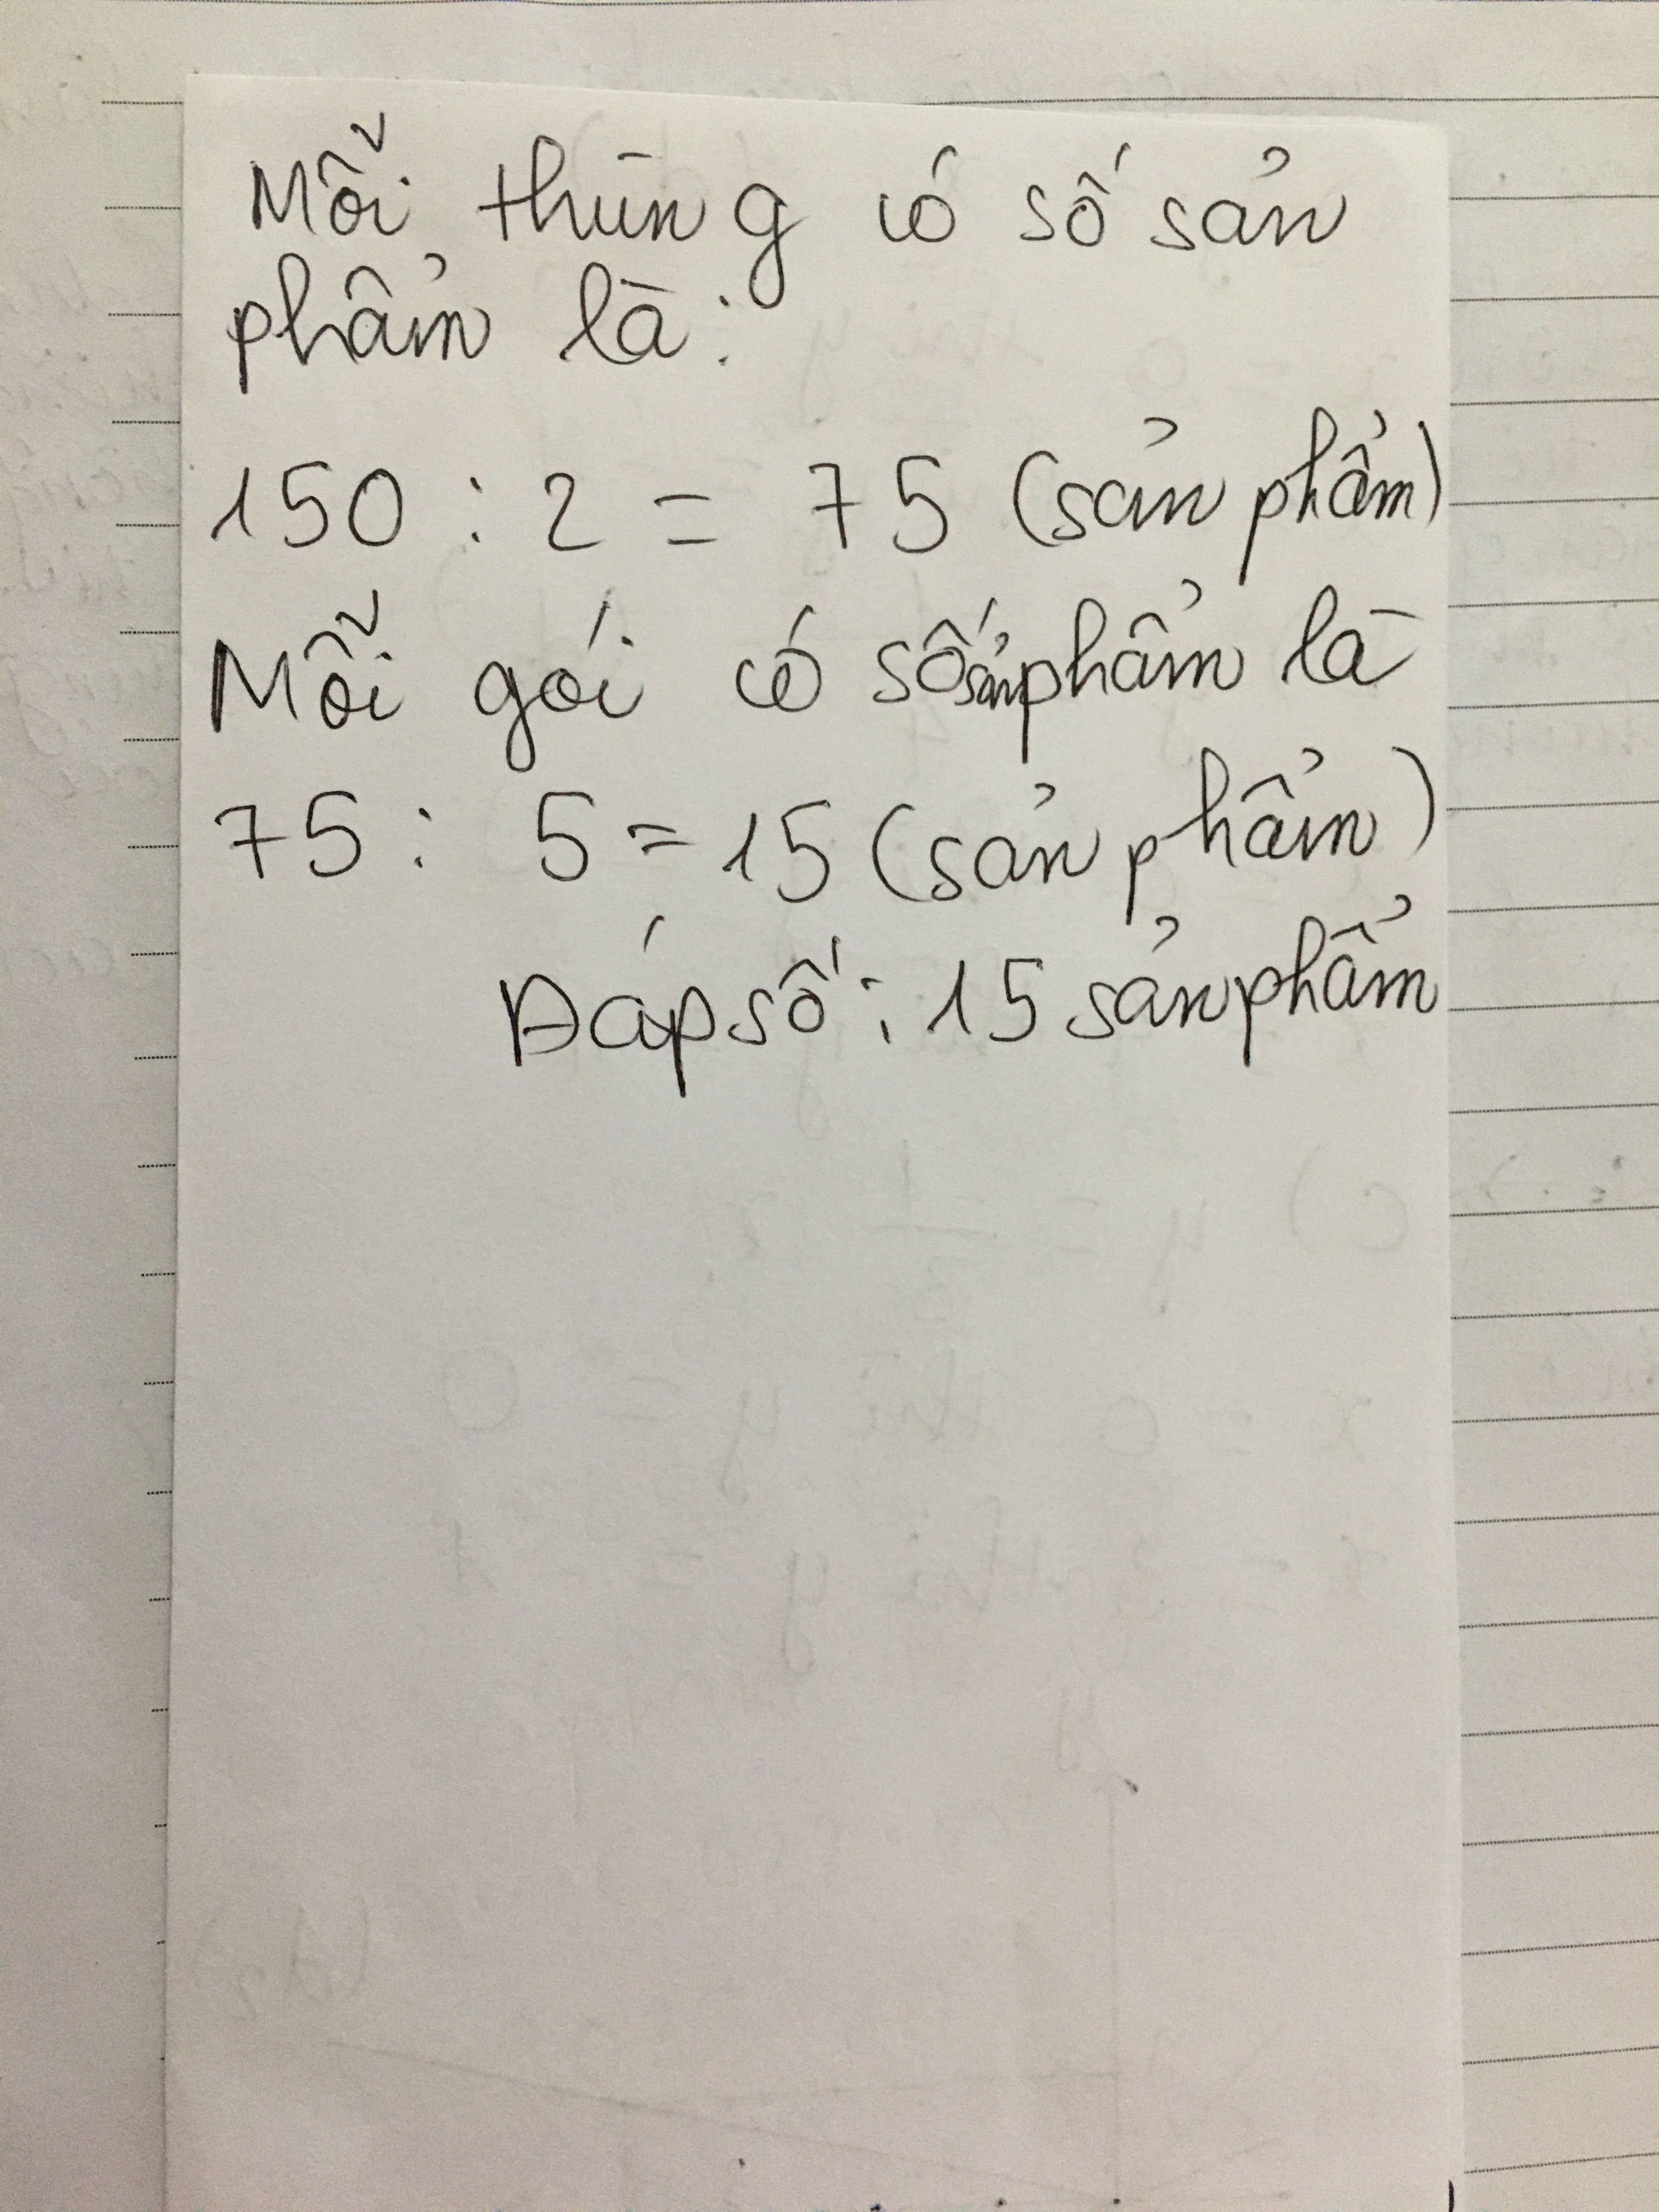 Mỗi thùng có số sản
phẩm là:
150 : 2 = 75 (sản phẩm)
Mỗi gói có số sản phẩm là
75 : 5 = 15 (sản phẩm)
Đáp số : 15 sản phẩm